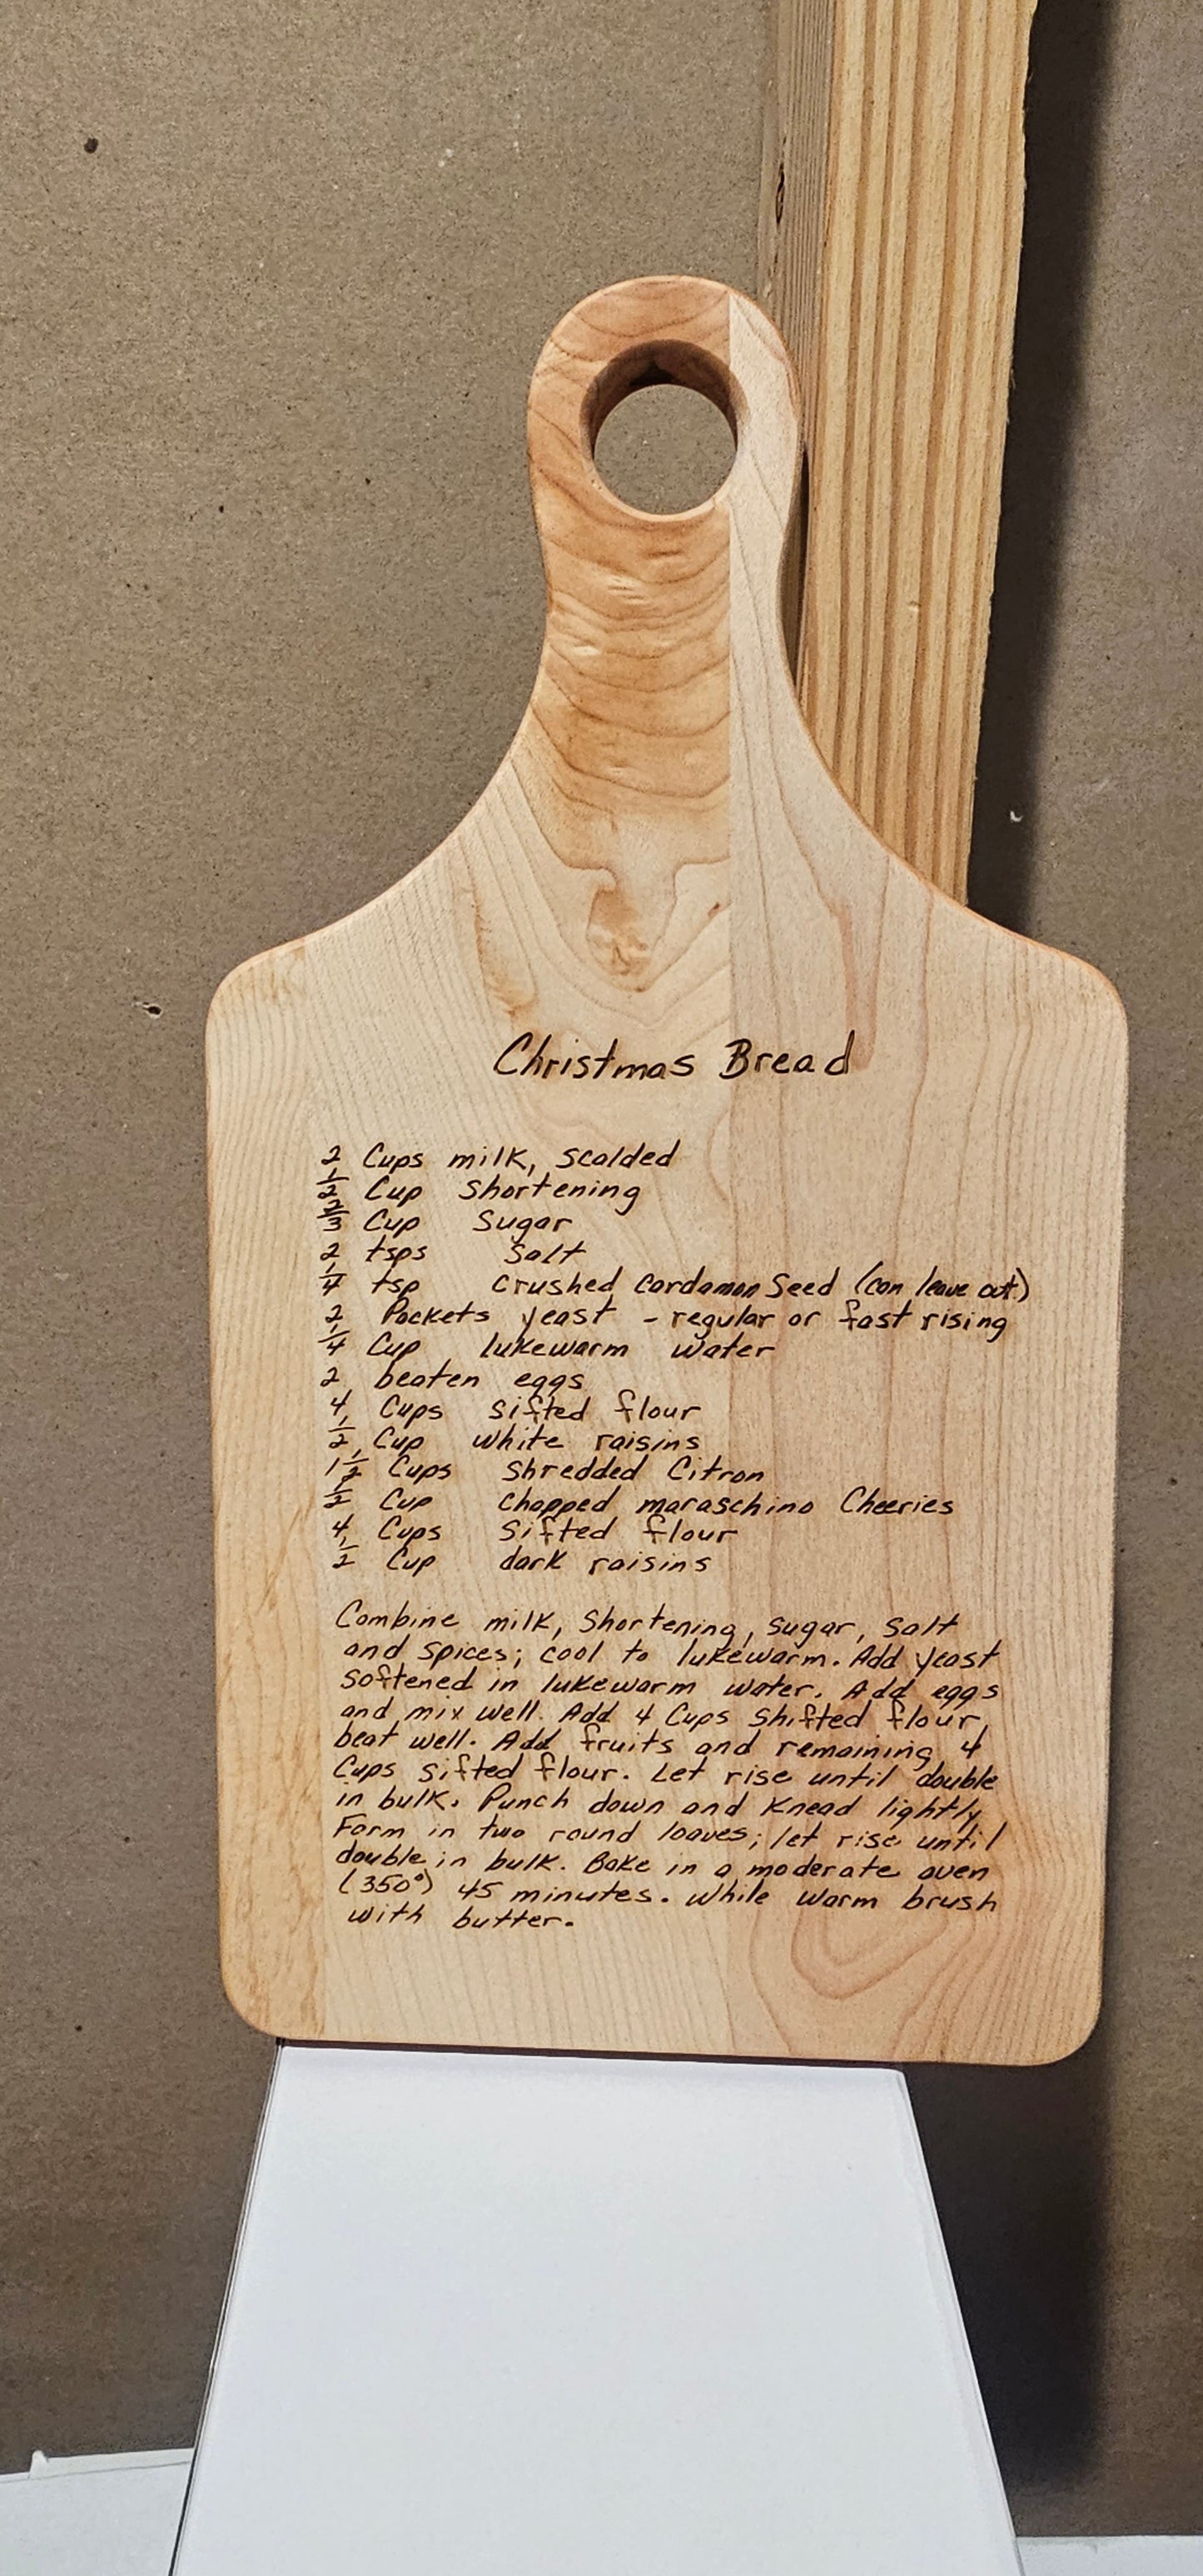 Christmas Bread
2 Cups milk, scalded
1/2 Cup Shortening
2/3 Cup Sugar
2 tsps Salt
1/4 tsp crushed Cardamon Seed (can leave out)
2 Packets yeast - regular or fast rising
1/4 Cup lukewarm water
2 beaten eggs
4 Cups sifted flour
1/2 Cup white raisins
1 1/2 Cups shredded Citron
1/2 Cup chopped maraschino Cheeries
4 Cups sifted flour
1/2 Cup dark raisins
Combine milk, Shortening, sugar, salt
and spices; cool to lukewarm. Add yeast
softened in lukewarm water. Add eggs
and mix well. Add 4 Cups Shifted flour,
beat well. Add fruits and remaining 4
Cups sifted flour. Let rise until double
in bulk. Punch down and knead lightly
Form in two round loaves; let rise until
double in bulk. Bake in a moderate oven
(350°) 45 minutes. While warm brush
with butter.